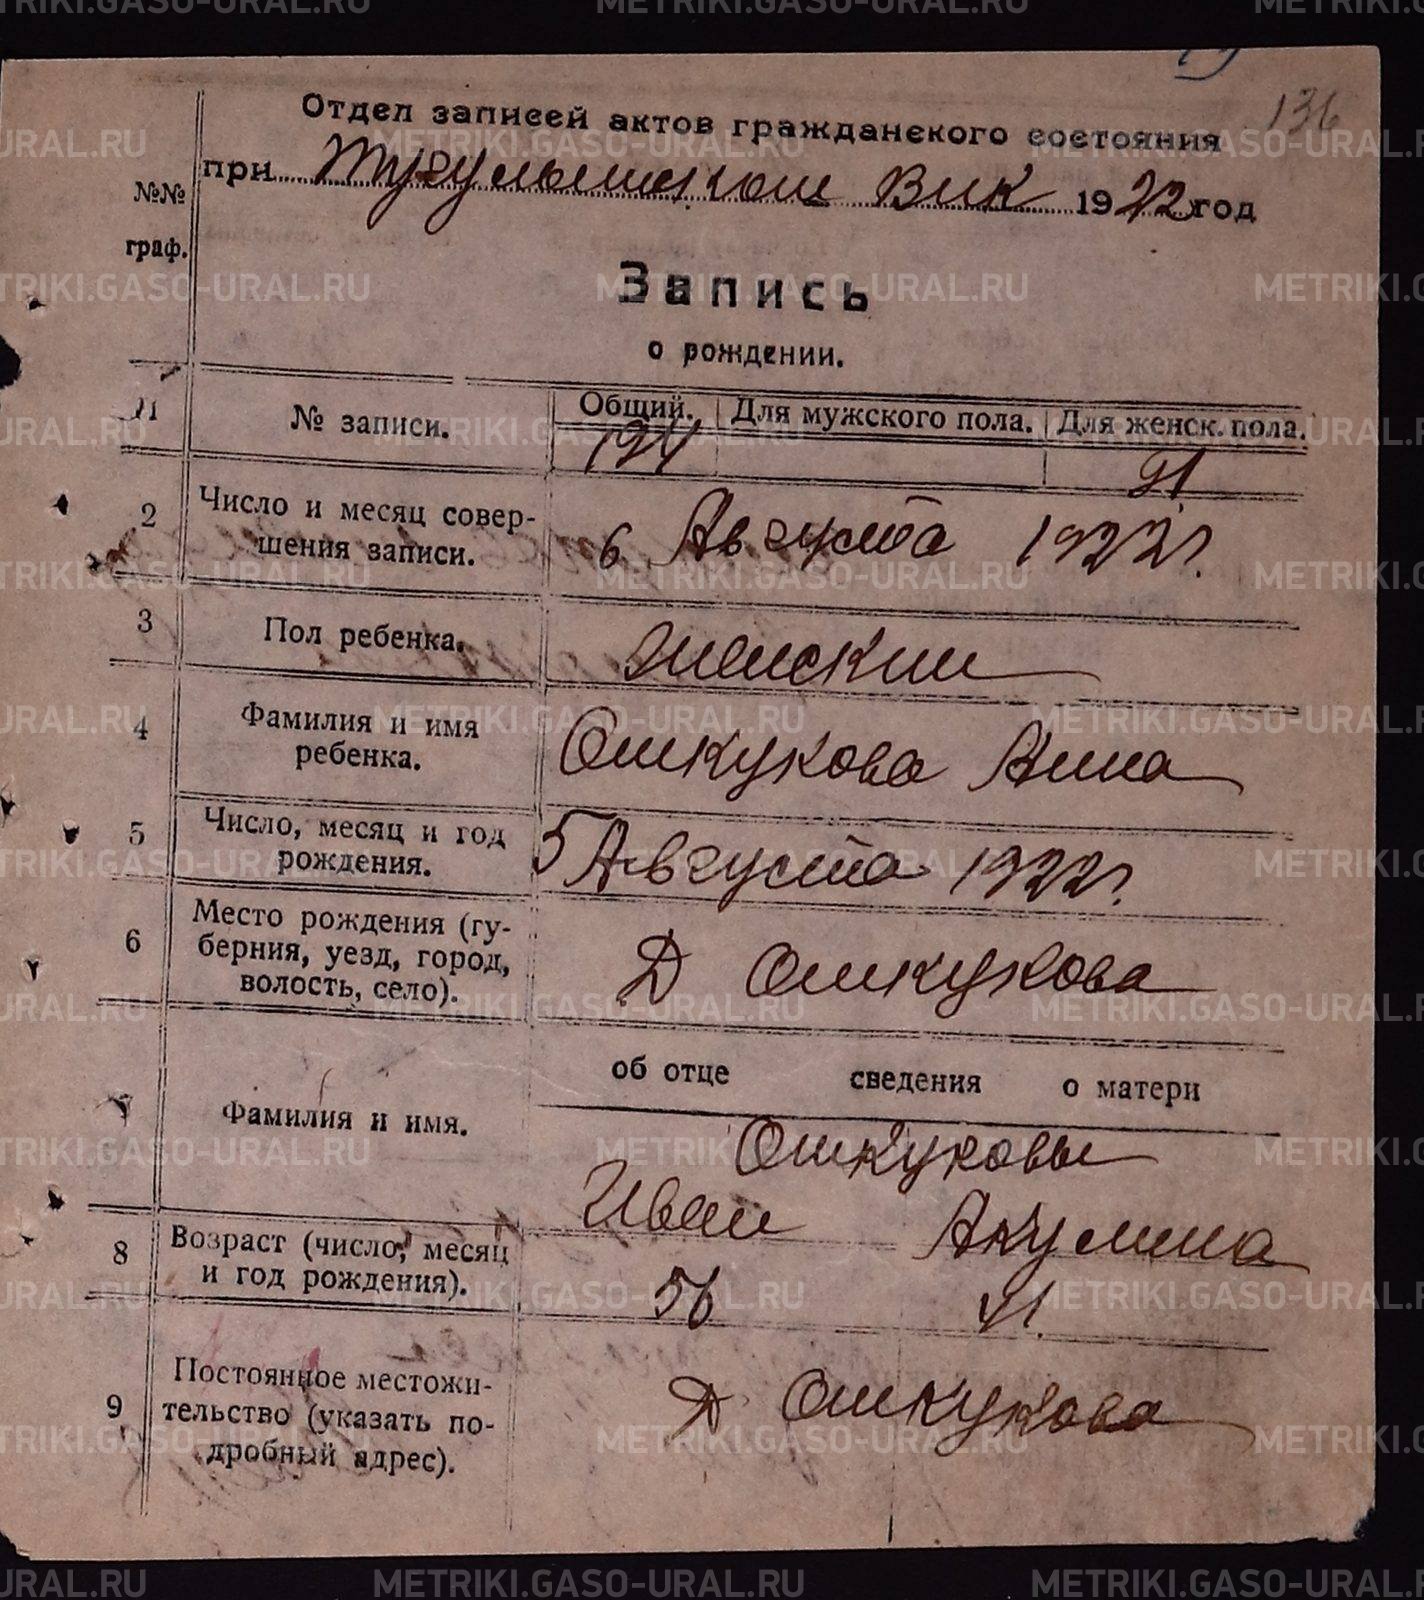 136
Отдел записей актов гражданского состояния
при Тугулымском Вик 1922 год
№№ граф.
Запись
о рождении.
1 № записи. Общий. Для мужского пола. Для женск. пола.
194 91
2 Число и месяц совер-
шения записи. 6 Августа 1922 г.
3 Пол ребенка. Женский
4 Фамилия и имя
ребенка. Ошкукова Анна
5 Число, месяц и год
рождения. 5 Августа 1922 г.
6 Место рождения (гу-
берния, уезд, город,
волость, село). Д Ошкукова
об отце сведения о матери
7 Фамилия и имя. Ошкуковы
Иван Акулина
8 Возраст (число, месяц
и год рождения). 56 41.
9 Постоянное местожи-
тельство (указать по-
дробный адрес). Д Ошкукова
METRIKI.GASO-URAL.RU